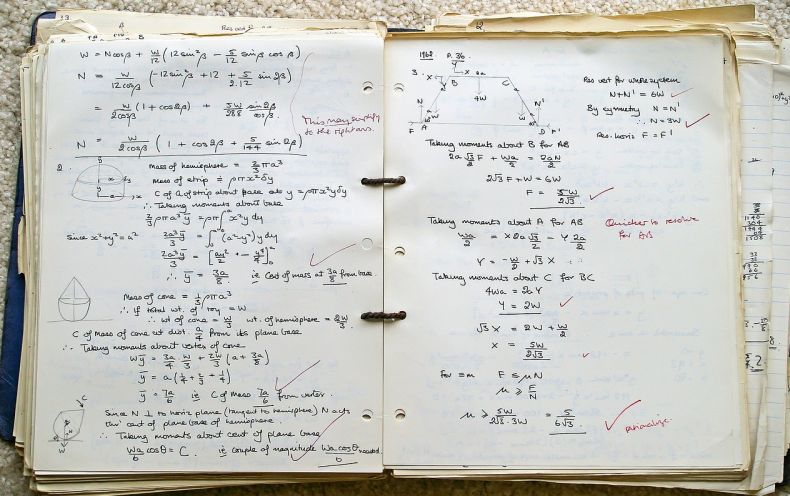 W = Ncosβ + W/12 (12 sin²β − 5/12 sinβ cosβ)
N = W/12cosβ (−12 sin²β + 12 + 5/2.12 sin2β)
= W/2cosβ (1 + cos2β) + 5W/288 sin2β/cosβ
This may simplify
to the right ans.
N = W/2cosβ (1 + cos2β + 5/144 sin2β)
2.
Mass of hemisphere = 2/3 πρa³
Mass of strip = ρπx²δy
C of G of strip about base at y = ρπx²yδy
∴ Taking moments about base
2/3 ρπa³ȳ = ρπ∫x²y dy
Since x²+y² = a²
2a³ȳ/3 = ∫(a²−y²)y dy
2a³ȳ/3 = [ay²/2 − y⁴/4]
∴ ȳ = 3a/8 ie Cent of mass at 3a/8 from base.
Mass of cone = 1/3 ρπa³
∴ If total wt of toy = W
∴ wt of cone = W/3 wt. of hemisphere = 2W/3
C of Mass of cone at dist. a/4 from its plane base
∴ Taking moments about vertex of cone
Wȳ = 3a/4 W/3 + 2W/3 (a + 3a/8)
ȳ = a(1/4 + 2/3 + 1/4)
ȳ = 7a/6 ie C of Mass 7a/6 from vertex.
Since N ⊥ to horiz plane (tangent to hemisphere) N acts
thro' cent of plane base of hemisphere.
∴ Taking moments about cent of plane base
Wa/6 cosθ = C. ie couple of magnitude Wa cosθ/6 needed.
12
1968 P. 36
3.
X Y X 2a
B C
4W
N N'
F A D F'
Res vert for whole system
N+N' = 6W
By symmetry N = N'
∴ N = 3W
Res. horiz F = F'
Taking moments about B for AB
2a√3/2 F + Wa/2 = 2aN/2
2√3 F + W = 6W
F = 5W/2√3
Taking moments about A for AB
Quicker to resolve
for AB
Wa/2 = X 2a√3/2 − Y 2a/2
Y = −W/2 + √3 X
Taking moments about C for BC
4Wa = 2aY
Y = 2W
√3X = 2W + W/2
X = 5W/2√3
for =m F ≤ μN
μ ≥ F/N
μ ≥ 5W/2√3·3W = 5/6√3
rationalize